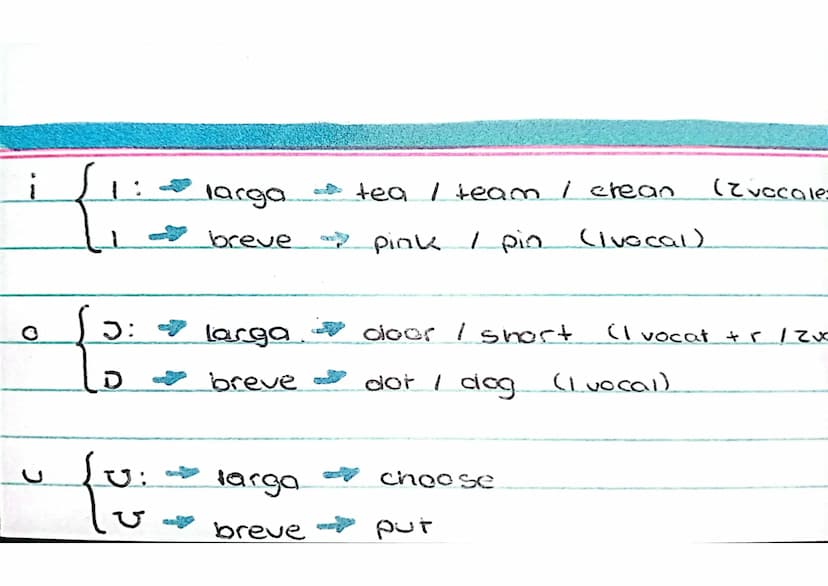 i { I: → larga → tea / team / clean (2 vocales
I → breve → pink / pin (1 vocal)
o { Ɔ: → larga → door / short (1 vocal + r / 2 vo
ɒ → breve → dot / dog (1 vocal)
u { ʊ: → larga → choose
ʊ → breve → put